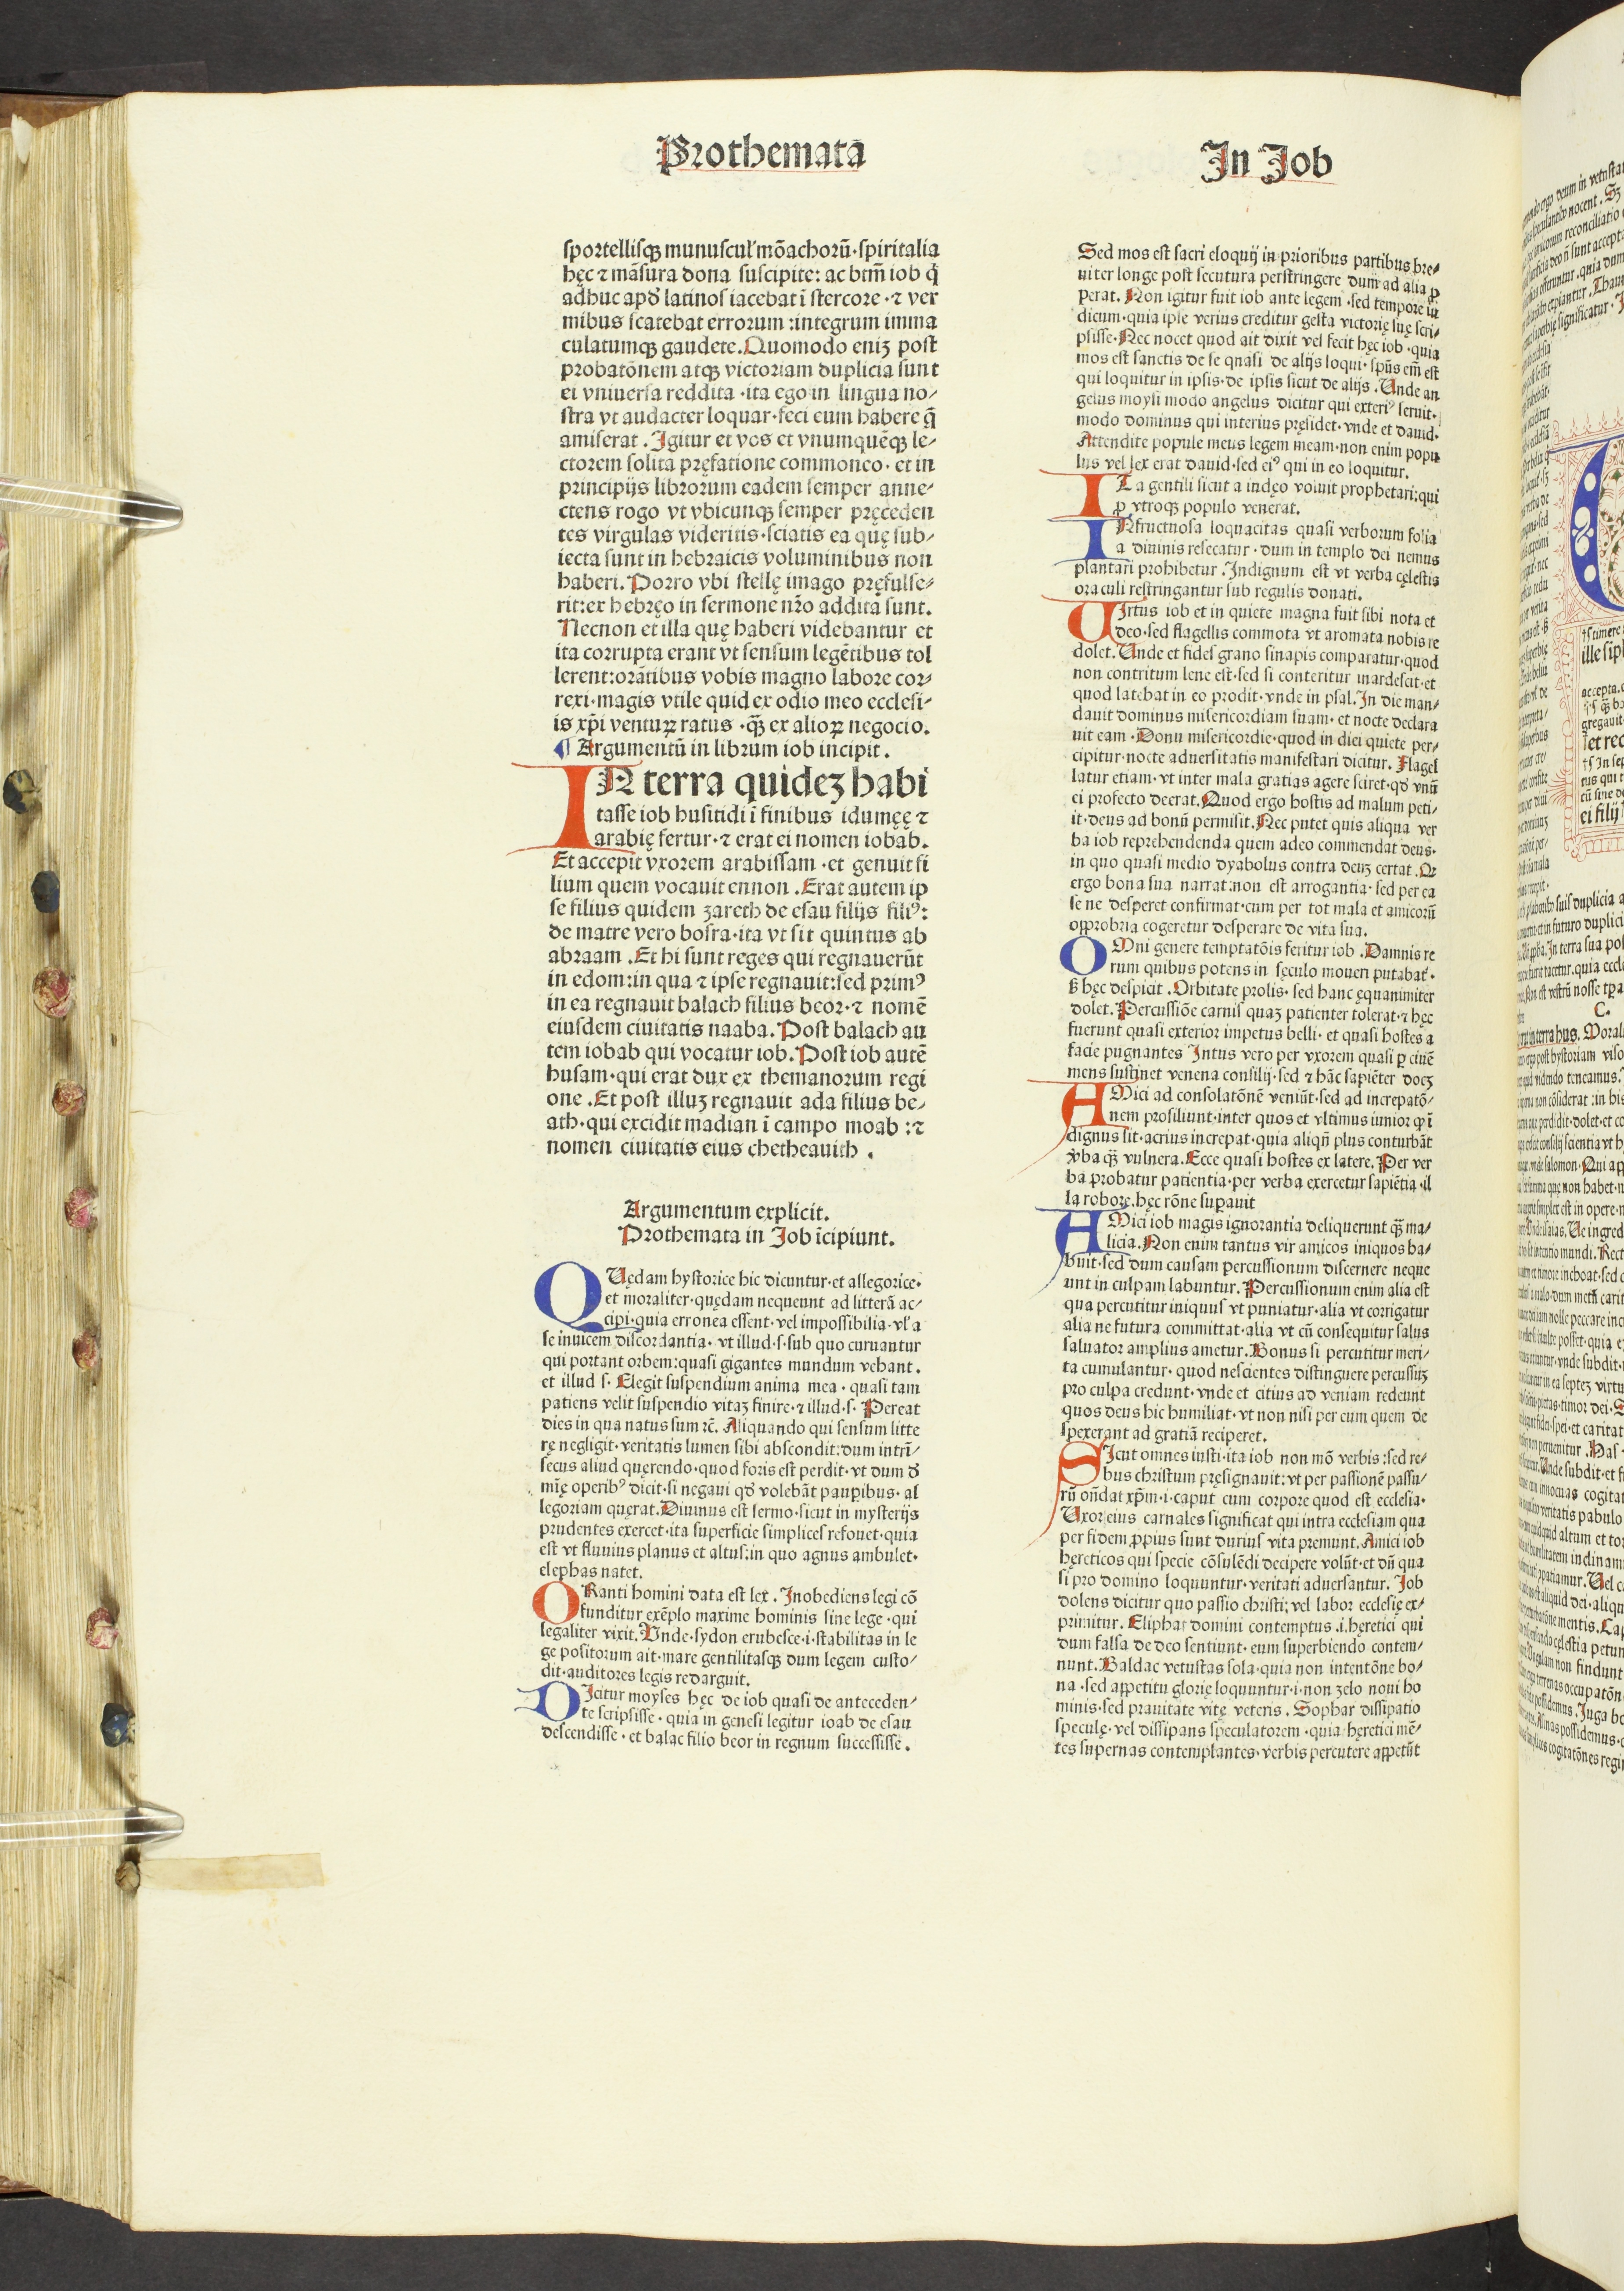 Prothemata
sportellisqꝫ munuscul' mōachorū·spiritalia
hęc ⁊ māsura dona suscipite: ac btm̄ iob q̇
adhuc apd̕ latinos iacebat ī stercore·⁊ ver
mibus scatebat errorum:integrum imma
culatumqꝫ gaudete.Quomodo eniꝫ post
probatōnem atqꝫ victoriam duplicia sunt
ei vniuersa reddita·ita ego in lingua no⸗
stra vt audacter loquar·feci eum habere q̄
amiserat. Igitur et vos et vnumquēqꝫ le⸗
ctorem solita pręfatione commoneo·et in
principijs librorum eadem semper anne⸗
ctens rogo vt vbicunqꝫ semper pręceden
tes virgulas videritis·sciatis ea quę sub⸗
iecta sunt in hebraicis voluminibus non
haberi. Porro vbi stellę imago pręfulse⸗
rit:ex hebręo in sermone nr̄o addita sunt.
Necnon et illa quę haberi videbantur et
ita corrupta erant vt sensum legētibus tol
lerent:oratibus vobis magno labore cor⸗
rexi·magis vtile quid ex odio meo ecclesi⸗
is xp̄i ventuꝝ ratus·qꝫ̄ ex alioꝝ negocio.
¶ Argumentū in librum iob incipit.
IN terra quideꝫ habi
tasse iob husitidi ī finibus idumęę ⁊
arabię fertur·⁊ erat ei nomen iobab.
Et accepit vxorem arabissam·et genuit fi
lium quem vocauit ennon.Erat autem ip
se filius quidem zareth de esau filijs filiꝰ:
de matre vero bosra·ita vt sit quintus ab
abraam.Et hi sunt reges qui regnauerūt
in edom:in qua ⁊ ipse regnauit:sed primꝰ
in ea regnauit balach filius beor·⁊ nomē
eiusdem ciuitatis naaba.Post balach au
tem iobab qui vocatur iob.Post iob autē
husam·qui erat dux ex themanorum regi
one.Et post illuꝫ regnauit ada filius be⸗
ath·qui excidit madian ī campo moab:⁊
nomen ciuitatis eius chetheauith.
Argumentum explicit.
Prothemata in Job īcipiunt.
QUędam hystorice hic dicuntur·et allegorice·
et moraliter·quędam nequeunt ad litterā ac⸗
cipi·quia erronea essent·vel impossibilia·vl' a
se inuicem discordantia·vt illud·s·sub quo curuantur
qui portant orbem:quasi gigantes mundum vehant.
et illud s·Elegit suspendium anima mea·quasi tam
patiens velit suspendio vitaꝫ finire·⁊ illud·s·Pereat
dies in qua natus sum ⁊c̄. Aliquando qui sensum litte
rę negligit·veritatis lumen sibi abscondit:dum intrī⸗
secus aliud quęrendo·quod foris est perdit·vt dum d̕
mię operibꝰ dicit·si negaui qd̕ volebāt pauꝑibus·al
legoriam quęrat.Diuinus est sermo·sicut in mysterijs
prudentes exercet·ita superficie simplices refouet·quia
est vt fluuius planus et altus:in quo agnus ambulet·
elephas natet.
ORanti homini data est lex. Inobediens legi cō
funditur exēplo maxime hominis sine lege·qui
legaliter vixit.Unde·sydon erubesce·i·stabilitas in le
ge positorum ait·mare gentilitasqꝫ dum legem custo⸗
dit·auditores legis redarguit.
DIcitur moyses hęc de iob quasi de anteceden⸗
te scripsisse·quia in genesi legitur ioab de esau
descendisse·et balac filio beor in regnum successisse.
In Job
Sed mos est sacri eloquij in prioribus partibus bre⸗
uiter longe post secutura perstringere dum ad alia ꝓ
perat. Non igitur fuit iob ante legem·sed tempore iu
dicum·quia ipse verius creditur gesta victorię suę scri⸗
psisse·Nec nocet quod ait dixit vel fecit hęc iob·quia
mos est sanctis de se quasi de alijs loqui·spūs em̄ est
qui loquitur in ipsis·de ipsis sicut de alijs. Unde an
gelus moysi modo angelus dicitur qui exteriꝰ seruit·
modo dominus qui interius pręsidet·vnde et dauid.
Attendite popule meus legem meam·non enim popu
lus vel lex erat dauid·sed eiꝰ qui in eo loquitur.
ITa gentili sicut a iudęo voluit prophetari:qui
ꝓ vtroqꝫ populo venerat.
INfructuosa loquacitas quasi verborum folia
a diuinis resecatur·dum in templo dei nemus
plantari prohibetur. Indignum est vt verba cęlestis
oraculi restringantur sub regulis donati.
UIrtus iob et in quiete magna fuit sibi nota et
deo·sed flagellis commota vt aromata nobis re
dolet. Unde et fides grano sinapis comparatur·quod
non contritum lene est·sed si conteritur inardescit·et
quod latebat in eo prodit·vnde in psal.In die man⸗
dauit dominus misericordiam suam·et nocte declara
uit eam·Donū misericordie·quod in diei quiete per⸗
cipitur·nocte aduersitatis manifestari dicitur. Flagel
latur etiam·vt inter mala gratias agere sciret·qd̕ vnū
ei profecto deerat.Quod ergo hostis ad malum peti⸗
it·deus ad bonū permisit.Nec putet quis aliqua ver
ba iob reprehendenda quem adeo commendat deus·
in quo quasi medio dyabolus contra deuꝫ certat.Qꝛ
ergo bona sua narrat:non est arrogantia·sed per ea
se ne desperet confirmat·cum per tot mala et amicorū
opprobria cogeretur desperare de vita sua.
OMni genere temptatōis feritur iob.Damnis re
rum quibus potens in sęculo moueri putabat᷒.
ß hęc despicit.Orbitate prolis·sed hanc ęquanimiter
dolet.Percussiōe carnis quaꝫ patienter tolerat·⁊ hęc
fuerunt quasi exterior impetus belli·et quasi hostes a
facie pugnantes Intus vero per vxorem quasi ꝑ ciuē
mens sustinet venena consilij·sed ⁊ hāc sapiēter doceꝫ
AMici ad consolatōnē veniūt·sed ad increpatō⸗
nem prosiliunt·inter quos et vltimus iunior qꝫ ī
dignus sit·acrius increpat·quia aliqn̄ plus conturbāt
v̕ba qꝫ̄ vulnera.Ecce quasi hostes ex latere.Per ver
ba probatur patientia·per verba exercetur sapiētia·il
la robore.hęc rōne suꝑauit
AMici iob magis ignorantia deliquerunt qꝫ̄ ma⸗
licia.Non enim tantus vir amicos iniquos ha⸗
buit·sed dum causam percussionum discernere neque
unt in culpam labuntur.Percussionum enim alia est
qua percutitur iniquus vt puniatur·alia vt corrigatur
alia ne futura committat·alia vt cū consequitur salus
saluator amplius ametur.Bonus si percutitur meri⸗
ta cumulantur·quod nescientes distinguere percussuꝫ
pro culpa credunt·vnde et citius ad veniam redeunt
quos deus hic humiliat·vt non nisi per eum quem de
spexerant ad gratiā reciperet.
SIcut omnes iusti·ita iob non mō verbis:sed re⸗
bus christum pręsignauit:vt per passionē passu⸗
rū on̄dat xp̄m·i·caput cum corpore quod est ecclesia.
Uxor eius carnales significat qui intra ecclesiam qua
per fidem ꝓpius sunt durius vita premunt.Amici iob
hęreticos qui specie cōsulēdi decipere volūt·et dū qua
si pro domino loquuntur·veritati aduersantur. Job
dolens dicitur quo passio christi;vel labor ecclesię ex⸗
primitur. Eliphat domini contemptus.i.hęretici qui
dum falsa de deo sentiunt·eum superbiendo contem⸗
nunt.Baldac vetustas sola·quia non intentōne bo⸗
na·sed appetitu glorię loquuntur·i·non zelo noui ho
minis·sed prauitate vitę veteris. Sophar dissipatio
speculę·vel dissipans speculatorem·quia hęretici mē⸗
tes supernas contemplantes·verbis percutere appetūt